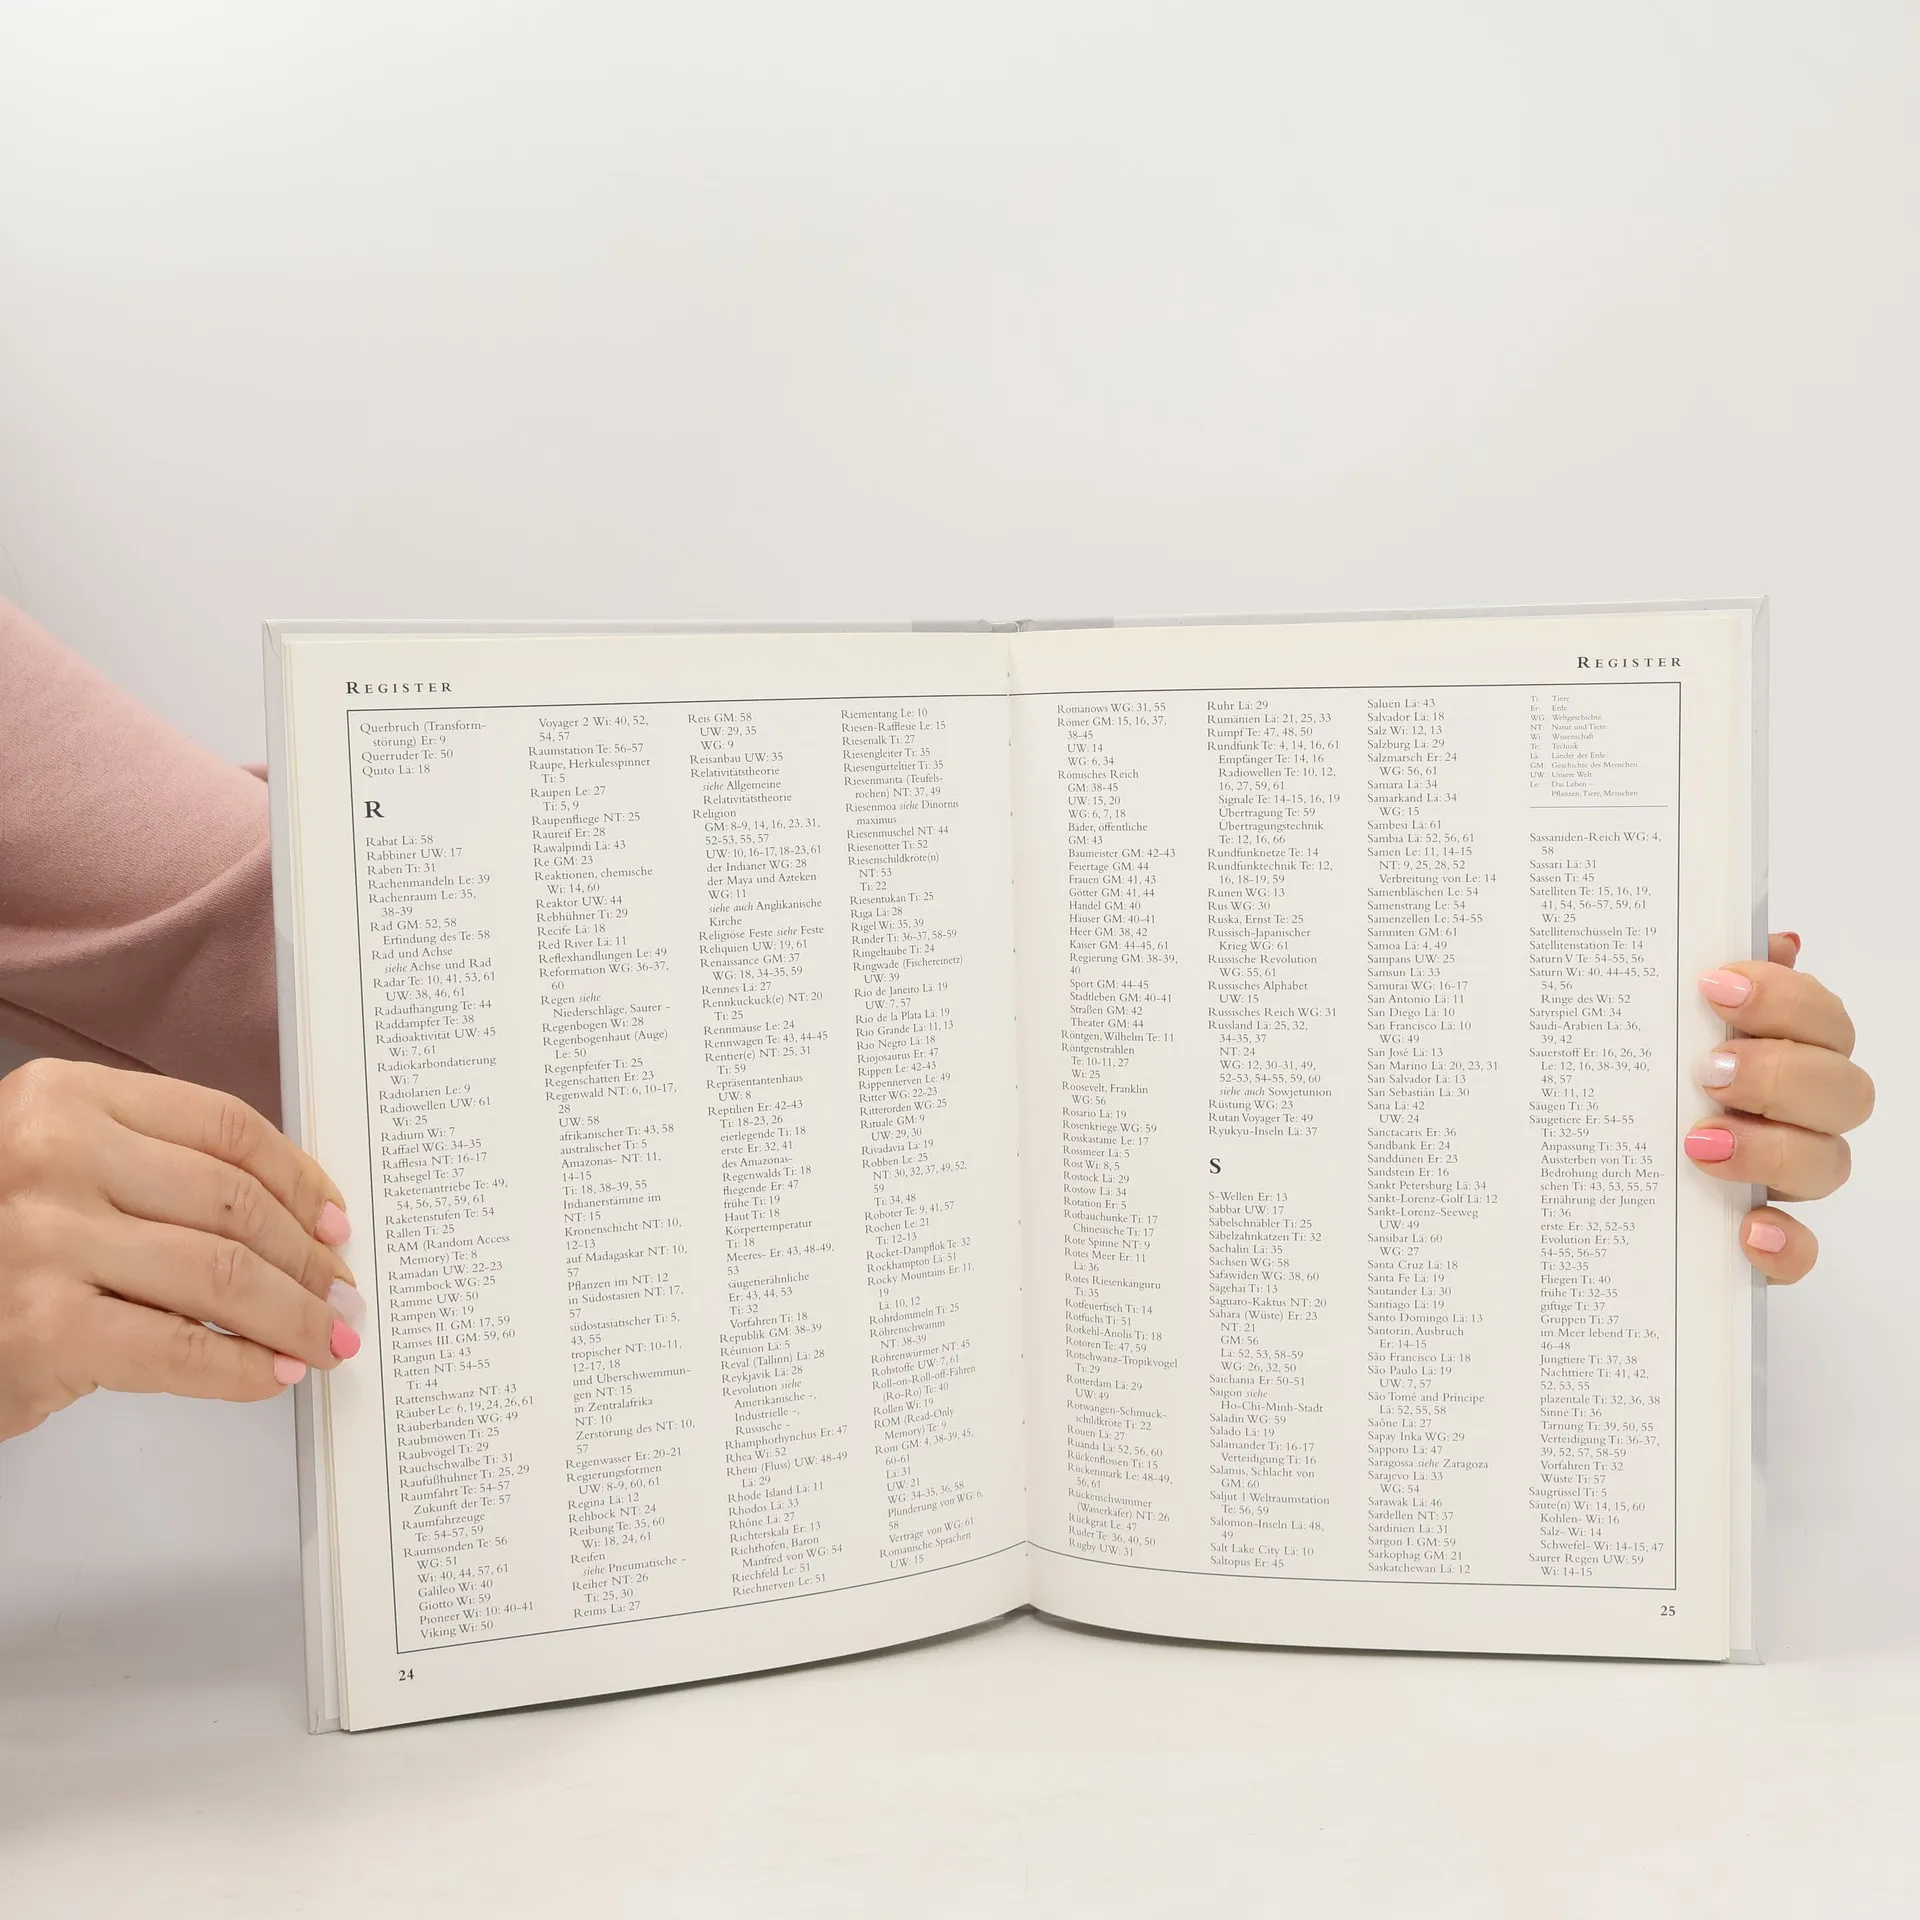 REGISTER
Querbruch (Transform-
störung) Er: 9
Querruder Te: 50
Quito Lä: 18
R
Rabat Lä: 58
Rabbiner UW: 17
Raben Ti: 31
Rachenmandeln Le: 39
Rachenraum Le: 35,
38-39
Rad GM: 52, 58
Erfindung des Te: 58
Rad und Achse
siehe Achse und Rad
Radar Te: 10, 41, 53, 61
UW: 38, 46, 61
Radaufhängung Te: 44
Raddampfer Te: 38
Radioaktivität UW: 45
Wi: 7, 61
Radiokarbondatierung
Wi: 7
Radiolarien Le: 9
Radiowellen UW: 61
Wi: 25
Radium Wi: 7
Raffael WG: 34-35
Rafflesia NT: 16-17
Rahsegel Te: 37
Raketenantriebe Te: 49,
54, 56, 57, 59, 61
Raketenstufen Te: 54
Rallen Ti: 25
RAM (Random Access
Memory) Te: 8
Ramadan UW: 22-23
Rammbock WG: 25
Ramme UW: 50
Rampen Wi: 19
Ramses II. GM: 17, 59
Ramses III. GM: 59, 60
Rangun Lä: 43
Ratten NT: 54-55
Ti: 44
Rattenschwanz NT: 43
Räuber Le: 6, 19, 24, 26, 61
Räuberbanden WG: 49
Raubmöwen Ti: 25
Raubvögel Ti: 29
Rauchschwalbe Ti: 31
Raufußhühner Ti: 25, 29
Raumfahrt Te: 54-57
Zukunft der Te: 57
Raumfahrzeuge
Te: 54-57, 59
Raumsonden Te: 56
WG: 51
Wi: 40, 44, 57, 61
Galileo Wi: 40
Giotto Wi: 59
Pioneer Wi: 10: 40-41
Viking Wi: 50
Voyager 2 Wi: 40, 52,
54, 57
Raumstation Te: 56-57
Raupe, Herkulesspinner
Ti: 5
Raupen Le: 27
Ti: 5, 9
Raupenfliege NT: 25
Raureif Er: 28
Rawalpindi Lä: 43
Re GM: 23
Reaktionen, chemische
Wi: 14, 60
Reaktor UW: 44
Rebhühner Ti: 29
Recife Lä: 18
Red River Lä: 11
Reflexhandlungen Le: 49
Reformation WG: 36-37,
60
Regen siehe
Niederschläge, Saurer –
Regenbogen Wi: 28
Regenbogenhaut (Auge)
Le: 50
Regenpfeifer Ti: 25
Regenschatten Er: 23
Regenwald NT: 6, 10-17,
28
UW: 58
afrikanischer Ti: 43, 58
australischer Ti: 5
Amazonas- NT: 11,
14-15
Ti: 18, 38-39, 55
Indianerstämme im
NT: 15
Kronenschicht NT: 10,
12-13
auf Madagaskar NT: 10,
57
Pflanzen im NT: 12
in Südostasien NT: 17,
57
südostasiatischer Ti: 5,
43, 55
tropischer NT: 10-11,
12-17, 18
und Überschwemmun-
gen NT: 15
in Zentralafrika
NT: 10
Zerstörung des NT: 10,
57
Regenwasser Er: 20-21
Regierungsformen
UW: 8-9, 60, 61
Regina Lä: 12
Rehbock NT: 24
Reibung Te: 35, 60
Wi: 18, 24, 61
Reifen
siehe Pneumatische –
Reiher NT: 26
Ti: 25, 30
Reims Lä: 27
Reis GM: 58
UW: 29, 35
WG: 9
Reisanbau UW: 35
Relativitätstheorie
siehe Allgemeine
Relativitätstheorie
Religion
GM: 8-9, 14, 16, 23, 31,
52-53, 55, 57
UW: 10, 16-17, 18-23, 61
der Indianer WG: 28
der Maya und Azteken
WG: 11
siehe auch Anglikanische
Kirche
Religiöse Feste siehe Feste
Reliquien UW: 19, 61
Renaissance GM: 37
WG: 18, 34-35, 59
Rennes Lä: 27
Rennkuckuck(e) NT: 20
Ti: 25
Rennmäuse Le: 24
Rennwagen Te: 43, 44-45
Rentier(e) NT: 25, 31
Ti: 59
Repräsentantenhaus
UW: 8
Reptilien Er: 42-43
Ti: 18-23, 26
eierlegende Ti: 18
erste Er: 32, 41
des Amazonas-
Regenwalds Ti: 18
fliegende Er: 47
frühe Ti: 19
Haut Ti: 18
Körpertemperatur
Ti: 18
Meeres- Er: 43, 48-49,
53
säugetierähnliche
Er: 43, 44, 53
Ti: 32
Vorfahren Ti: 18
Republik GM: 38-39
Réunion Lä: 5
Reval (Tallinn) Lä: 28
Reykjavik Lä: 28
Revolution siehe
Amerikanische –,
Industrielle –,
Russische –
Rhamphorhynchus Er: 47
Rhea Wi: 52
Rhein (Fluss) UW: 48-49
Lä: 29
Rhode Island Lä: 11
Rhodos Lä: 33
Rhône Lä: 27
Richterskala Er: 13
Richthofen, Baron
Manfred von WG: 54
Riechfeld Le: 51
Riechnerven Le: 51
Riementang Le: 10
Riesen-Rafflesie Le: 15
Riesenalk Ti: 27
Riesengleiter Ti: 35
Riesengürteltier Ti: 35
Riesenmanta (Teufels-
rochen) NT: 37, 49
Riesenmoa siehe Dinornus
maximus
Riesenmuschel NT: 44
Riesenotter Ti: 52
Riesenschildkröte(n)
NT: 53
Ti: 22
Riesentukan Ti: 25
Riga Lä: 28
Rigel Wi: 35, 39
Rinder Ti: 36-37, 58-59
Ringeltaube Ti: 24
Ringwade (Fischereinetz)
UW: 39
Rio de Janeiro Lä: 19
UW: 7, 57
Rio de la Plata Lä: 19
Rio Grande Lä: 11, 13
Rio Negro Lä: 18
Riojosaurus Er: 47
Rippen Le: 42-43
Rippennerven Le: 49
Ritter WG: 22-23
Ritterorden WG: 25
Rituale GM: 9
UW: 29, 30
Rivadavia Lä: 19
Robben Le: 25
NT: 30, 32, 37, 49, 52,
59
Ti: 34, 48
Roboter Te: 9, 41, 57
Rochen Le: 21
Ti: 12-13
Rocket-Dampflok Te: 32
Rockhampton Lä: 51
Rocky Mountains Er: 11,
19
Lä: 10, 12
Rohrdommeln Ti: 25
Röhrenschwamm
NT: 38-39
Röhrenwürmer NT: 45
Rohstoffe UW: 7, 61
Roll-on-Roll-off-Fähren
(Ro-Ro) Te: 40
Rollen Wi: 19
ROM (Read-Only
Memory) Te: 9
Rom GM: 4, 38-39, 45,
60-61
Lä: 31
UW: 21
WG: 34-35, 36, 58
Plünderung von WG: 6,
58
Verträge von WG: 61
Romanische Sprachen
UW: 15
24
REGISTER
Romanows WG: 31, 55
Römer GM: 15, 16, 37,
38-45
UW: 14
WG: 6, 34
Römisches Reich
GM: 38-45
UW: 15, 20
WG: 6, 7, 18
Bäder, öffentliche
GM: 43
Baumeister GM: 42-43
Feiertage GM: 44
Frauen GM: 41, 43
Götter GM: 41, 44
Handel GM: 40
Häuser GM: 40-41
Heer GM: 38, 42
Kaiser GM: 44-45, 61
Regierung GM: 38-39,
40
Sport GM: 44-45
Stadtleben GM: 40-41
Straßen GM: 42
Theater GM: 44
Röntgen, Wilhelm Te: 11
Röntgenstrahlen
Te: 10-11, 27
Wi: 25
Roosevelt, Franklin
WG: 56
Rosario Lä: 19
Rosenkriege WG: 59
Rosskastanie Le: 17
Rossmeer Lä: 5
Rost Wi: 8, 5
Rostock Lä: 29
Rostow Lä: 34
Rotation Er: 5
Rotbauchunke Ti: 17
Chinesische Ti: 17
Rote Spinne NT: 9
Rotes Meer Er: 11
Lä: 36
Rotes Riesenkänguru
Ti: 35
Rotfeuerfisch Ti: 14
Rotfuchs Ti: 51
Rotkehl-Anolis Ti: 18
Rotoren Te: 47, 59
Rotschwanz-Tropikvogel
Ti: 29
Rotterdam Lä: 29
UW: 49
Rotwangen-Schmuck-
schildkröte Ti: 22
Rouen Lä: 27
Ruanda Lä: 52, 56, 60
Rückenflossen Ti: 15
Rückenmark Le: 48-49,
56, 61
Rückenschwimmer
(Wasserkäfer) NT: 26
Rückgrat Le: 47
Ruder Te: 36, 40, 50
Rugby UW: 31
Ruhr Lä: 29
Rumänien Lä: 21, 25, 33
Rumpf Te: 47, 48, 50
Rundfunk Te: 4, 14, 16, 61
Empfänger Te: 14, 16
Radiowellen Te: 10, 12,
16, 27, 59, 61
Signale Te: 14-15, 16, 19
Übertragung Te: 59
Übertragungstechnik
Te: 12, 16, 66
Rundfunknetze Te: 14
Rundfunktechnik Te: 12,
16, 18-19, 59
Runen WG: 13
Rus WG: 30
Ruska, Ernst Te: 25
Russisch-Japanischer
Krieg WG: 61
Russische Revolution
WG: 55, 61
Russisches Alphabet
UW: 15
Russisches Reich WG: 31
Russland Lä: 25, 32,
34-35, 37
NT: 24
WG: 12, 30-31, 49,
52-53, 54-55, 59, 60
siehe auch Sowjetunion
Rüstung WG: 23
Rutan Voyager Te: 49
Ryukyu-Inseln Lä: 37
S
S-Wellen Er: 13
Sabbat UW: 17
Säbelschnäbler Ti: 25
Säbelzahnkatzen Ti: 32
Sachalin Lä: 35
Sachsen WG: 58
Safawiden WG: 38, 60
Sägehai Ti: 13
Saguaro-Kaktus NT: 20
Sahara (Wüste) Er: 23
NT: 21
GM: 56
Lä: 52, 53, 58-59
WG: 26, 32, 50
Saichania Er: 50-51
Saigon siehe
Ho-Chi-Minh-Stadt
Saladin WG: 59
Salado Lä: 19
Salamander Ti: 16-17
Verteidigung Ti: 16
Salamis, Schlacht von
GM: 60
Saljut 1 Weltraumstation
Te: 56, 59
Salomon-Inseln Lä: 48,
49
Salt Lake City Lä: 10
Saltopus Er: 45
Saluën Lä: 43
Salvador Lä: 18
Salz Wi: 12, 13
Salzburg Lä: 29
Salzmarsch Er: 24
WG: 56, 61
Samara Lä: 34
Samarkand Lä: 34
WG: 15
Sambesi Lä: 61
Sambia Lä: 52, 56, 61
Samen Le: 11, 14-15
NT: 9, 25, 28, 52
Verbreitung von Le: 14
Samenbläschen Le: 54
Samenstrang Le: 54
Samenzellen Le: 54-55
Samniten GM: 61
Samoa Lä: 4, 49
Sampans UW: 25
Samsun Lä: 33
Samurai WG: 16-17
San Antonio Lä: 11
San Diego Lä: 10
San Francisco Lä: 10
WG: 49
San José Lä: 13
San Marino Lä: 20, 23, 31
San Salvador Lä: 13
San Sebastián Lä: 30
Sana Lä: 42
UW: 24
Sanctacaris Er: 36
Sandbank Er: 24
Sanddünen Er: 23
Sandstein Er: 16
Sankt Petersburg Lä: 34
Sankt-Lorenz-Golf Lä: 12
Sankt-Lorenz-Seeweg
UW: 49
Sansibar Lä: 60
WG: 27
Santa Cruz Lä: 18
Santa Fe Lä: 19
Santander Lä: 30
Santiago Lä: 19
Santo Domingo Lä: 13
Santorin, Ausbruch
Er: 14-15
São Francisco Lä: 18
São Paulo Lä: 19
UW: 7, 57
São Tomé and Príncipe
Lä: 52, 55, 58
Saône Lä: 27
Sapay Inka WG: 29
Sapporo Lä: 47
Saragossa siehe Zaragoza
Sarajevo Lä: 33
WG: 54
Sarawak Lä: 46
Sardellen NT: 37
Sardinien Lä: 31
Sargon I. GM: 59
Sarkophag GM: 21
Saskatchewan Lä: 12
Ti: Tiere
Er: Erde
WG: Weltgeschichte
NT: Natur und Tiere
Wi: Wissenschaft
Te: Technik
Lä: Länder der Erde
GM: Geschichte des Menschen
UW: Unsere Welt
Le: Das Leben –
Pflanzen, Tiere, Menschen
Sassaniden-Reich WG: 4,
58
Sassari Lä: 31
Sassen Ti: 45
Satelliten Te: 15, 16, 19,
41, 54, 56-57, 59, 61
Wi: 25
Satellitenschüsseln Te: 19
Satellitenstation Te: 14
Saturn V Te: 54-55, 56
Saturn Wi: 40, 44-45, 52,
54, 56
Ringe des Wi: 52
Satyrspiel GM: 34
Saudi-Arabien Lä: 36,
39, 42
Sauerstoff Er: 16, 26, 36
Le: 12, 16, 38-39, 40,
48, 57
Wi: 11, 12
Säugen Ti: 36
Säugetiere Er: 54-55
Ti: 32-59
Anpassung Ti: 35, 44
Aussterben von Ti: 35
Bedrohung durch Men-
schen Ti: 43, 53, 55, 57
Ernährung der Jungen
Ti: 36
erste Er: 32, 52-53
Evolution Er: 53,
54-55, 56-57
Ti: 32-35
Fliegen Ti: 40
frühe Ti: 32-35
giftige Ti: 37
Gruppen Ti: 37
im Meer lebend Ti: 36,
46-48
Jungtiere Ti: 37, 38
Nachttiere Ti: 41, 42,
52, 53, 55
plazentale Ti: 32, 36, 38
Sinne Ti: 36
Tarnung Ti: 39, 50, 55
Verteidigung Ti: 36-37,
39, 52, 57, 58-59
Vorfahren Ti: 32
Wüste Ti: 57
Saugrüssel Ti: 5
Säure(n) Wi: 14, 15, 60
Kohlen- Wi: 16
Salz- Wi: 14
Schwefel- Wi: 14-15, 47
Saurer Regen UW: 59
Wi: 14-15
25